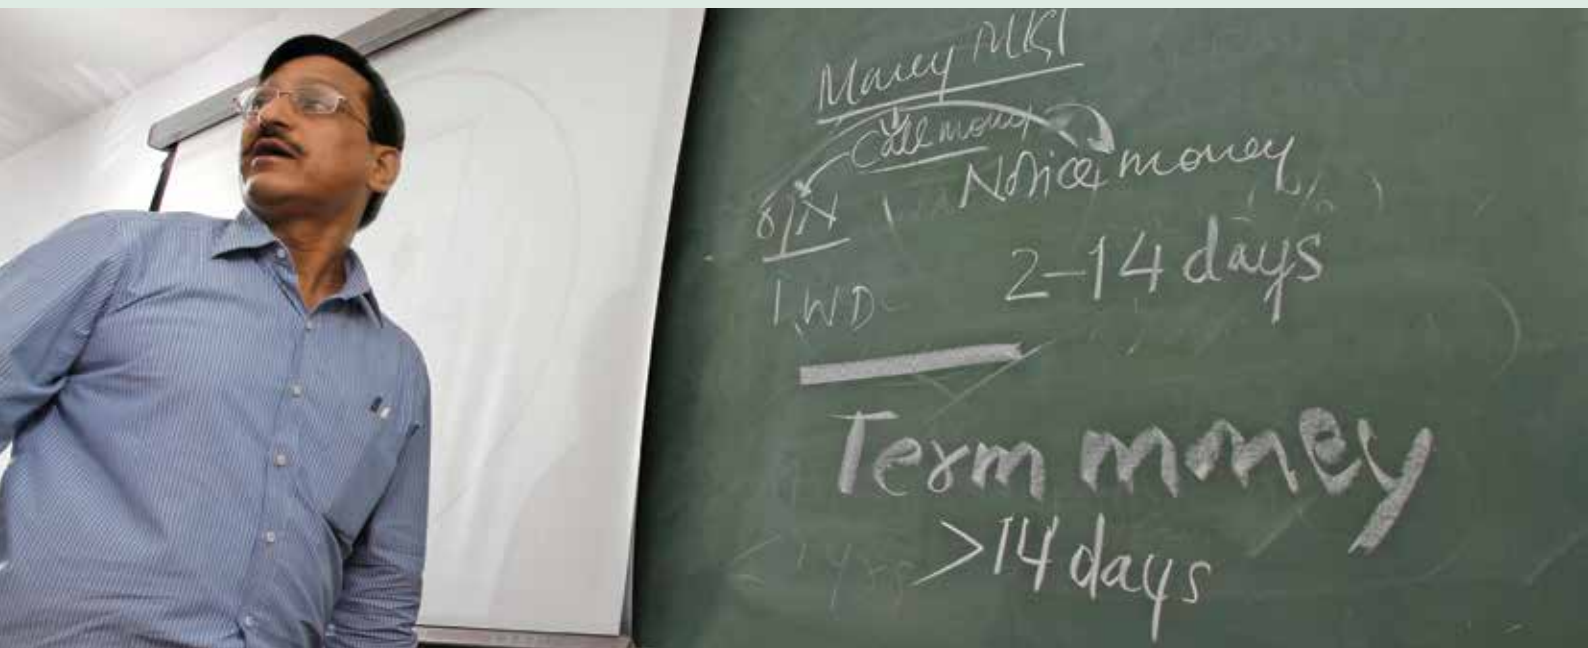 Money Mkt
Call money
Notice money
O/N
2-14 days
1 WD
Term money
>14 days